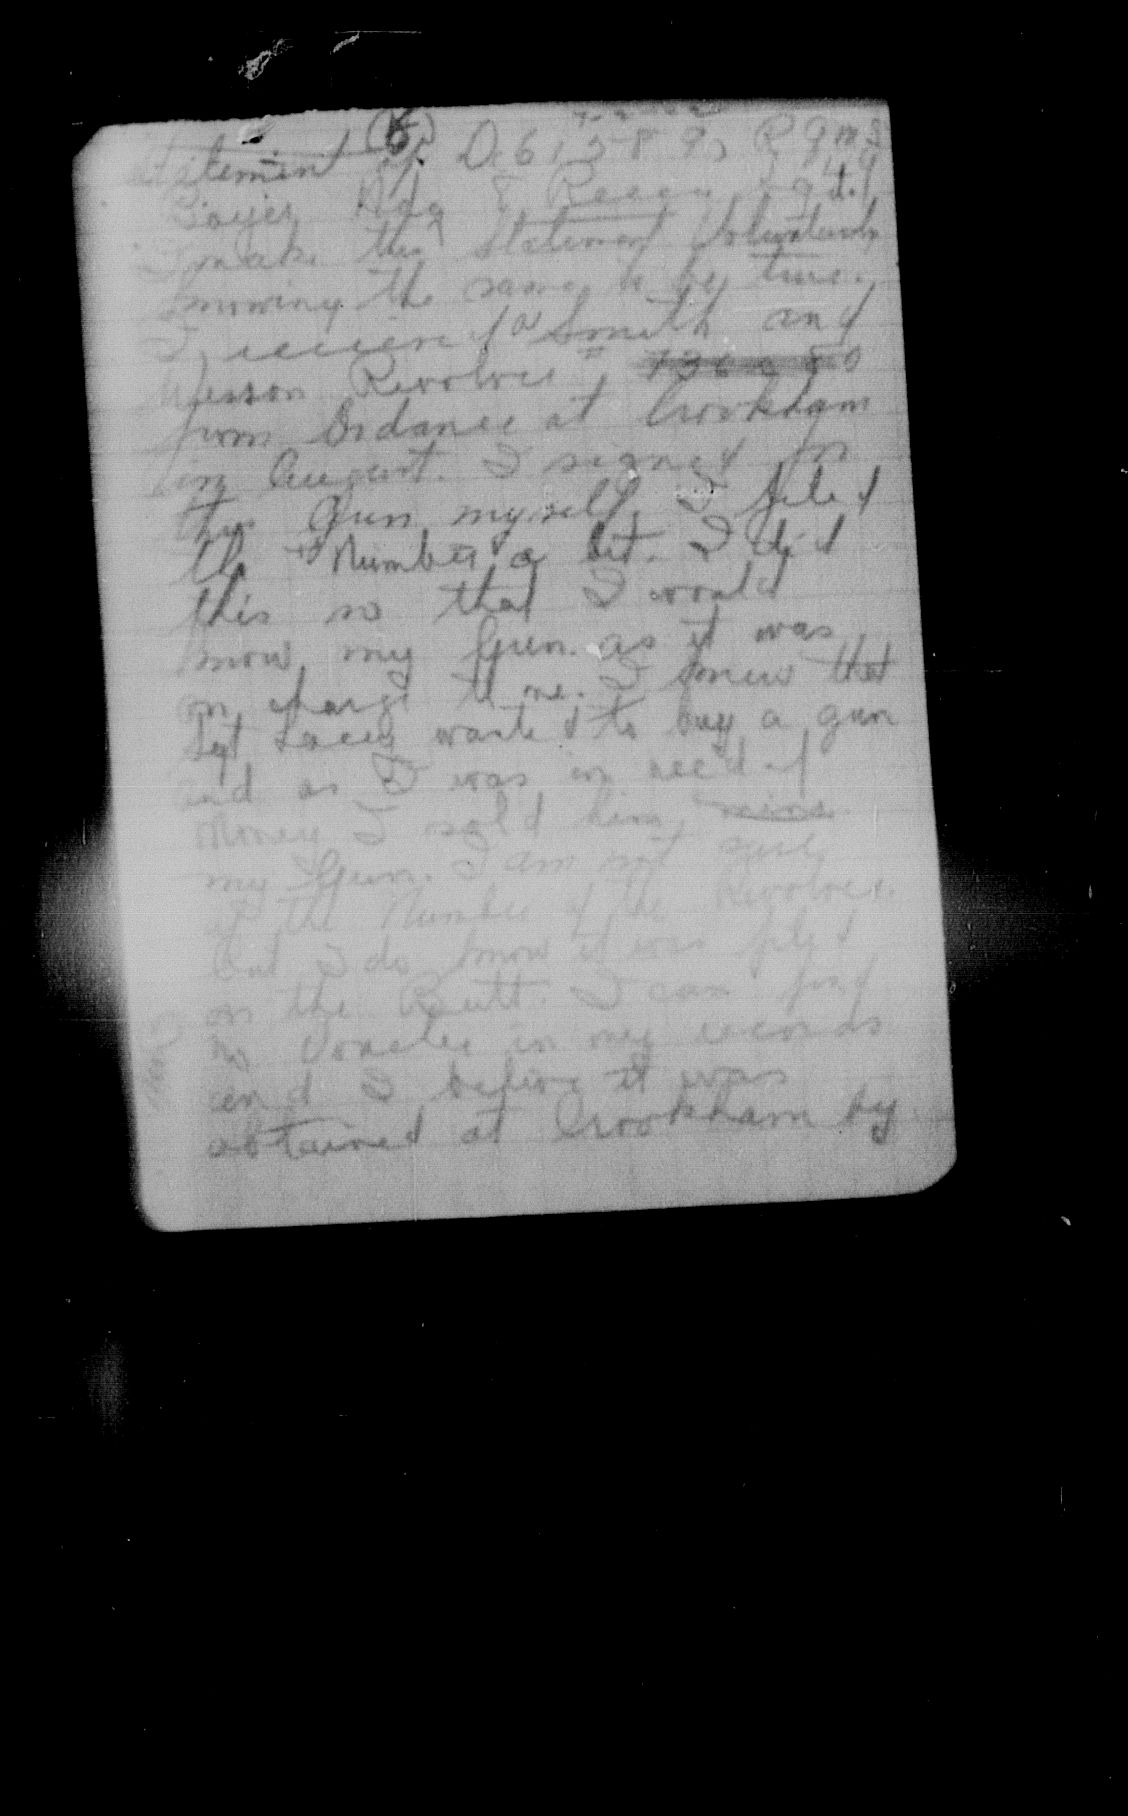 (6)
Statement of D.61589, RQMS
Sayer, Hdq 8 Recce Rgt.
I make this statement Voluntarily
knowing the same to be true.
I received a Smith and
Wesson Revolver
from Ordance at Crookham
in August. I signed for
this Gun myself. I filed
the Number a bit. I did
this so that I would
know my Gun as it was
on charge to me. I knew that
Sgt Lacey wanted to buy a gun
and as I was in need of
Money I sold him mine
my Gun. I am not sure
of the Number of the Revolver
but I do know it was filed
on the Butt. I can find
no Voucher in my records
and I belive it was
obtained at Crookham by